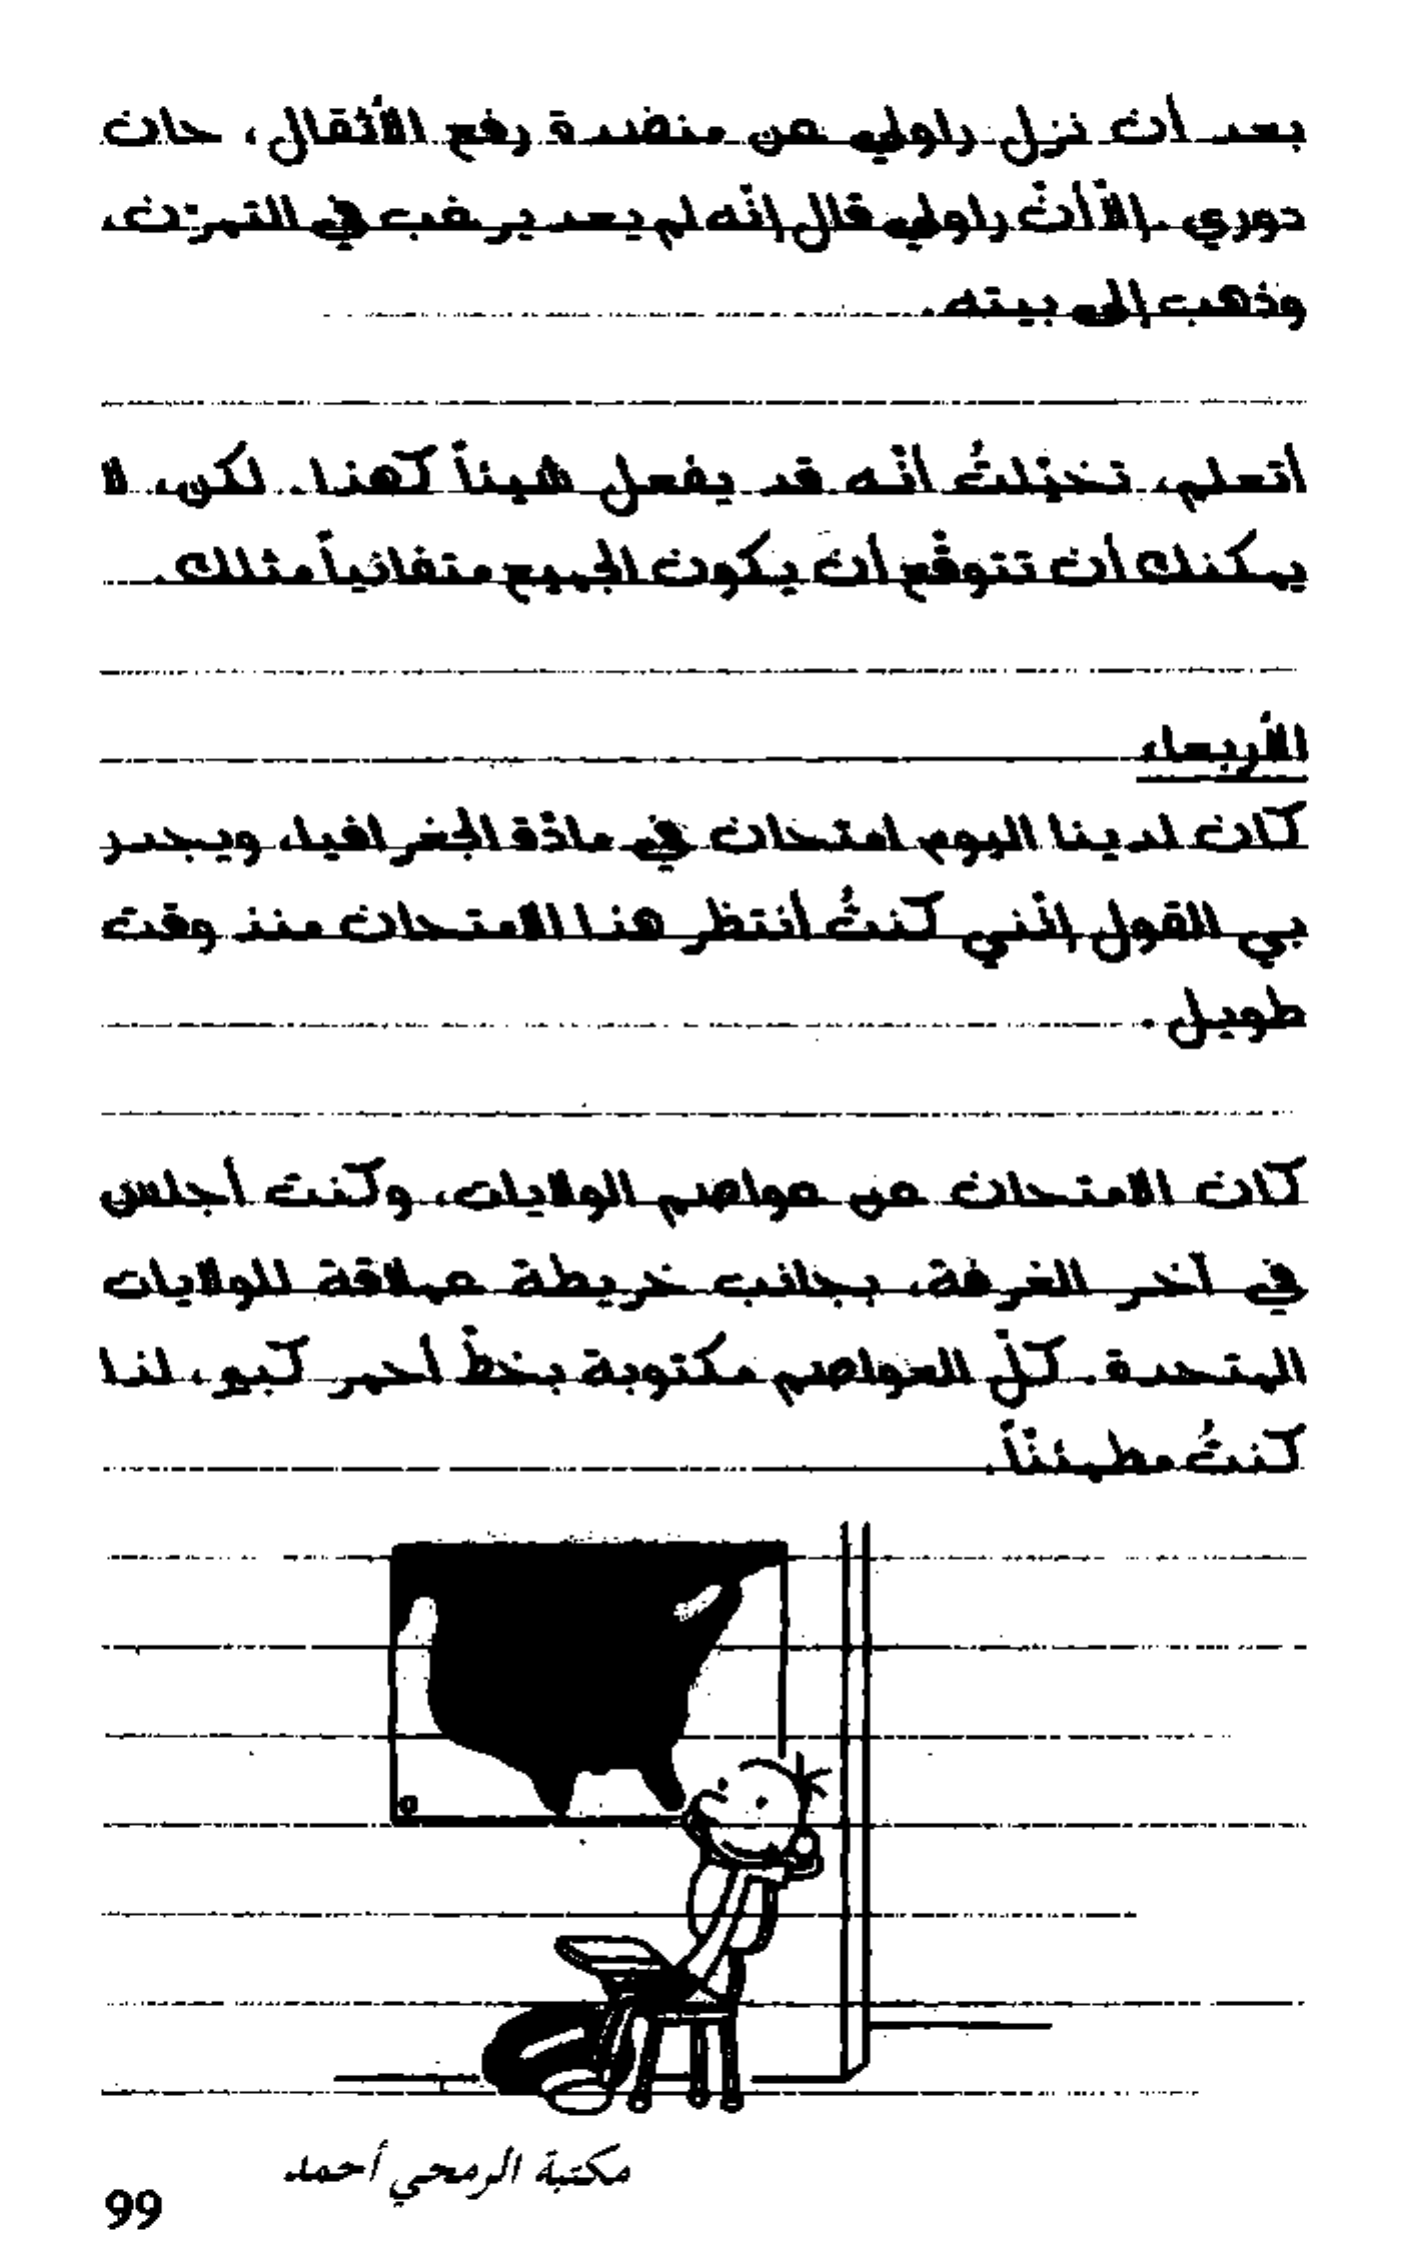 بعد أن نزل راولي عن منضدة رفع الأثقال، حان
دوري. إلاّ أنّ راولي قال إنّه لم يعد يرغب في التمرّن،
وذهب إلى بيته.
أتعلم، تخيّلتُ أنّه قد يفعل شيئاً كهذا. لكن، لا
يمكنك أن تتوقّع أن يكون الجميع متفانياً مثلك.
الأربعاء
كان لدينا اليوم امتحان في مادّة الجغرافيا، ويجدر
بي القول إنّني كنتُ أنتظر هذا الامتحان منذ وقت
طويل.
كان الامتحان عن عواصم الولايات، وكنت أجلس
في آخر الغرفة، بجانب خريطة عملاقة للولايات
المتحدة. كلّ العواصم مكتوبة بخطّ أحمر كبير، لذا
كنتُ مطمئنّاً.
مكتبة الرمحي أحمد
99